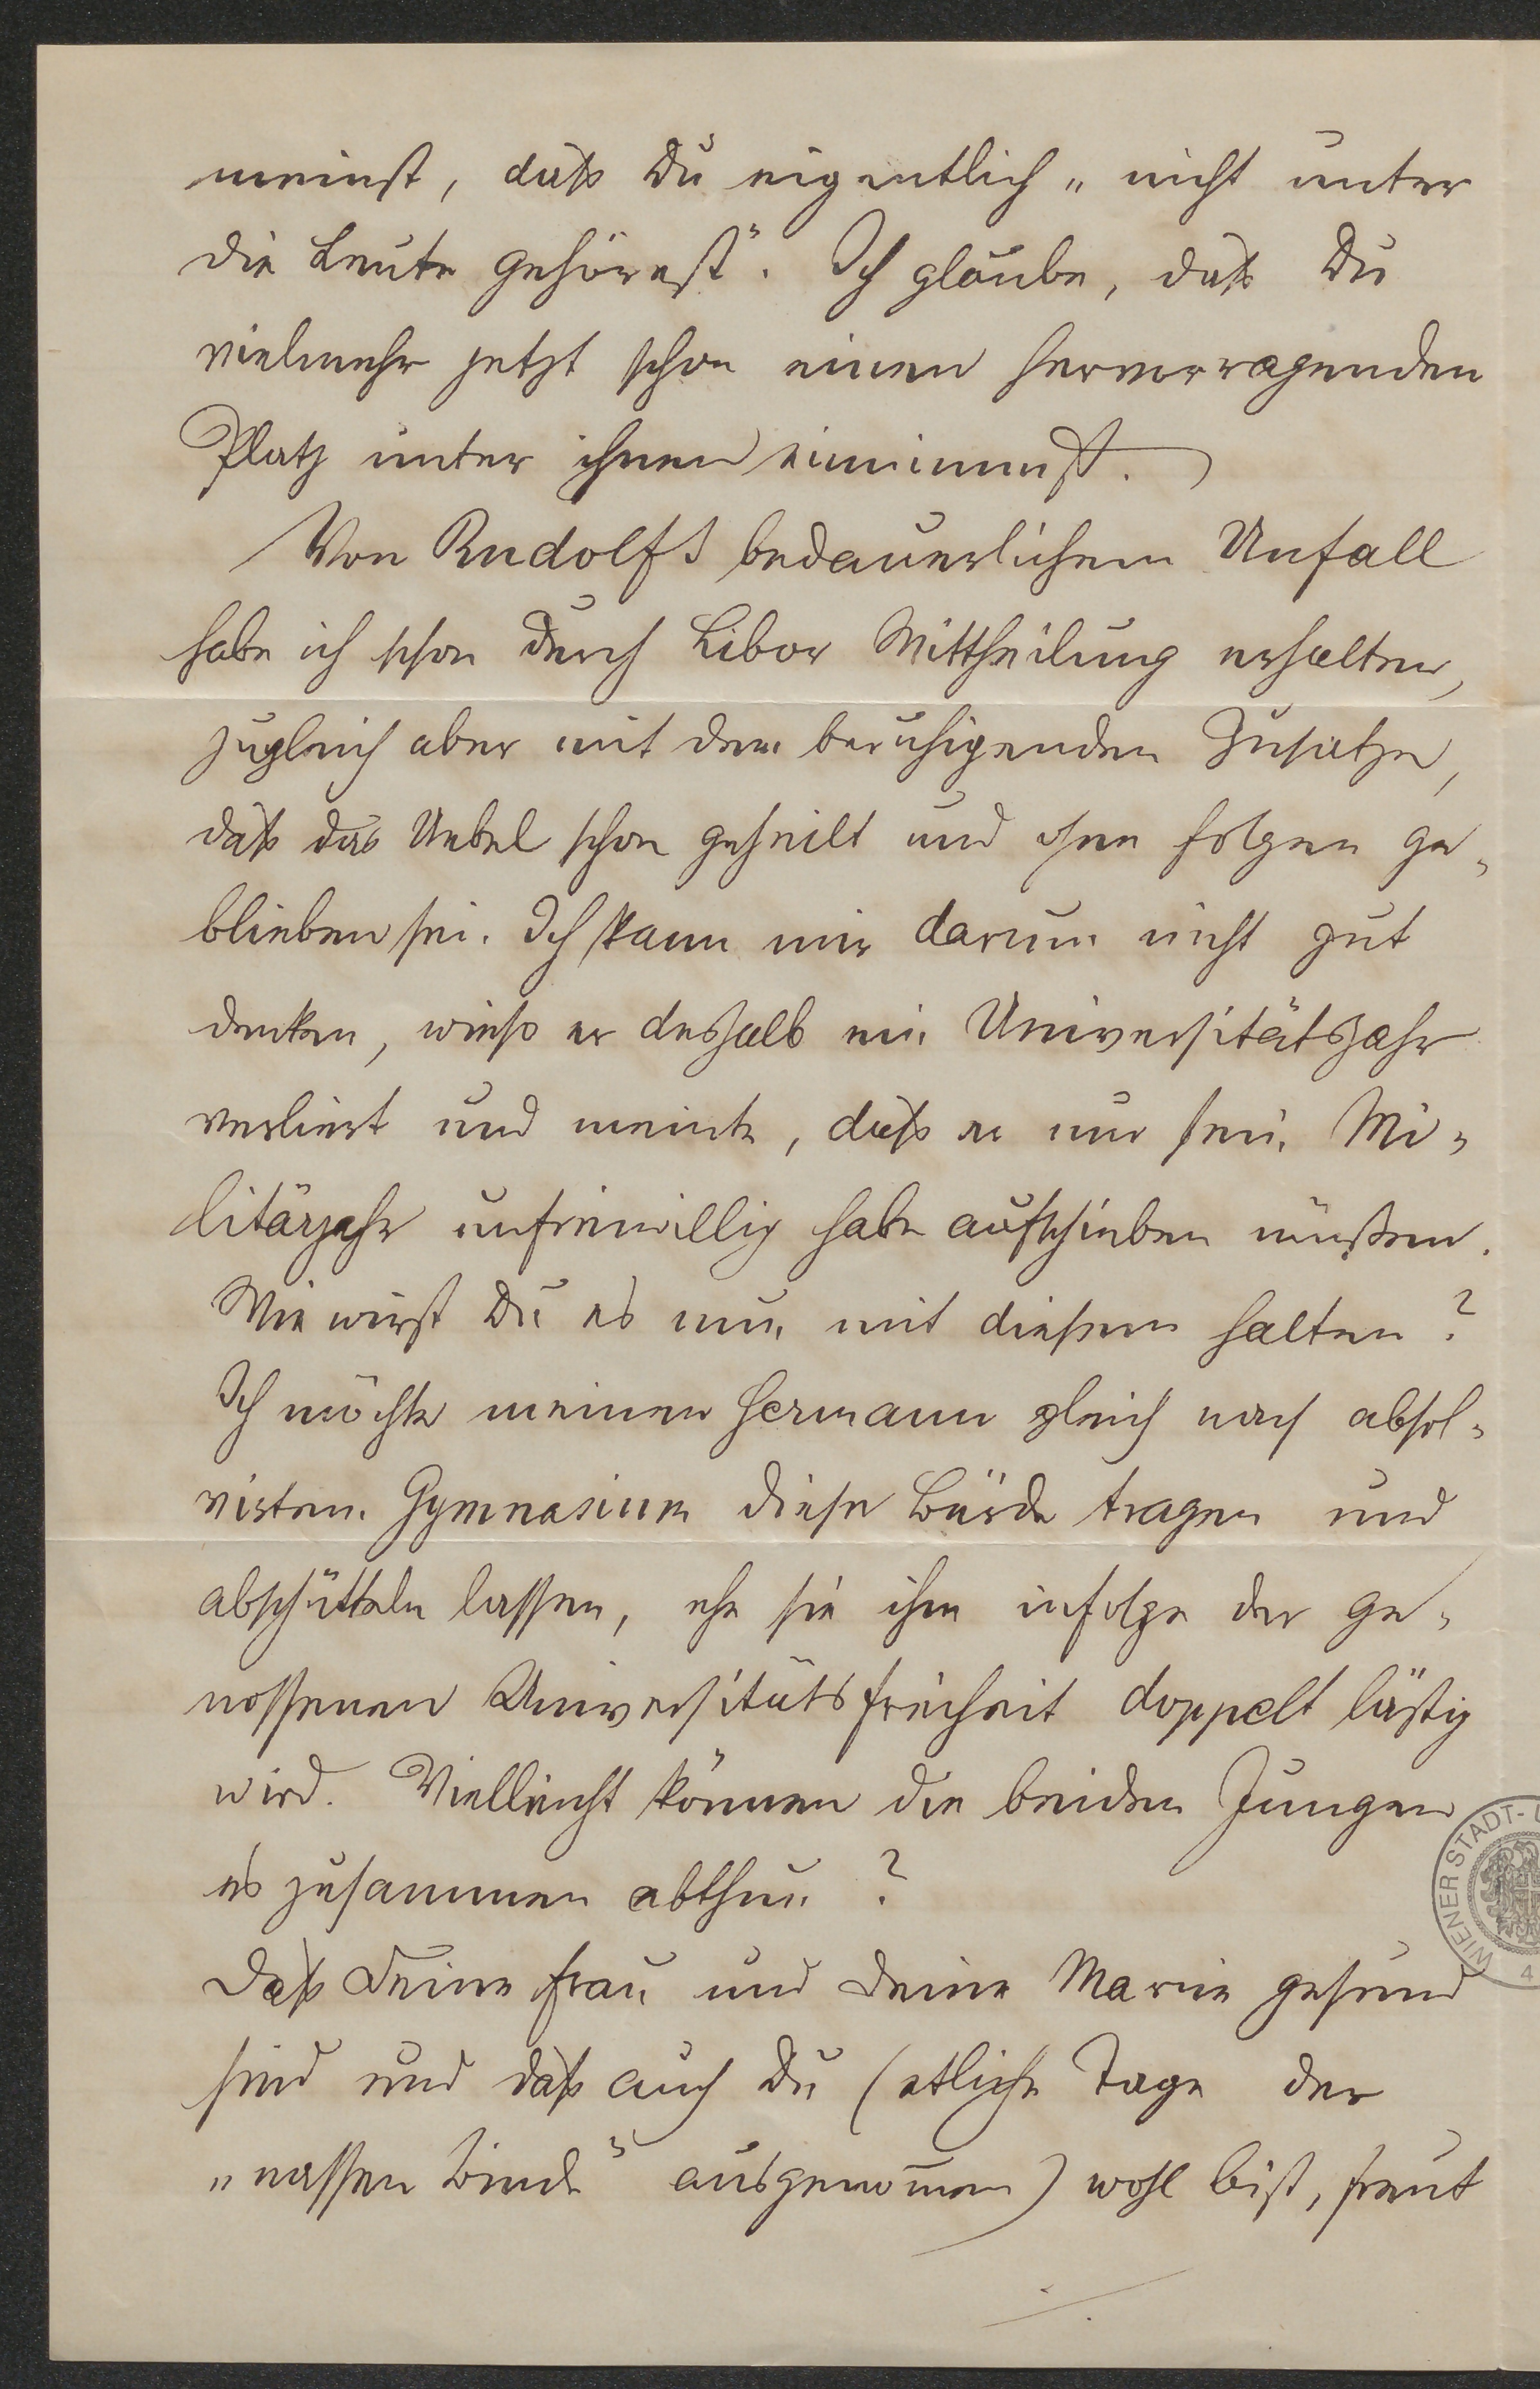 meinst, daß Du eigentlich „nicht unter
die Leute gehörest". Ich glaube, daß Du
vielmehr jetzt schon einen hervorragenden
Platz unter ihnen einnimmst.
Von Rudolfs bedauerlichem Unfall
habe ich schon durch Libor Mittheilung erhalten,
zugleich aber mit dem beruhigenden Zusatze,
daß das Uebel schon geheilt und ohne Folgen ge-
blieben sei. Ich kann mir darum nicht gut
denken, wieso er deshalb ein Universitätsjahr
verliert und meinte, daß er nur sein Mi-
litärjahr unfreiwillig habe aufschieben müßen.
Wie wirst Du es nun mit diesem halten?
Ich möchte meinen Hermann gleich nach absol-
virtem Gymnasium diese Bürde tragen und
abschütteln lassen, ehe sie ihm infolge der ge-
nossenen Universitätsfreiheit doppelt lästig
wird. Vielleicht können die beiden Jungen
es zusammen abthun?
Daß Deine Frau und Deine Marie gesund
sind und daß auch Du (etliche Tage der
„nassen Binde" ausgenommen) wohl bist, freut
./.
WIENER STADT-
4